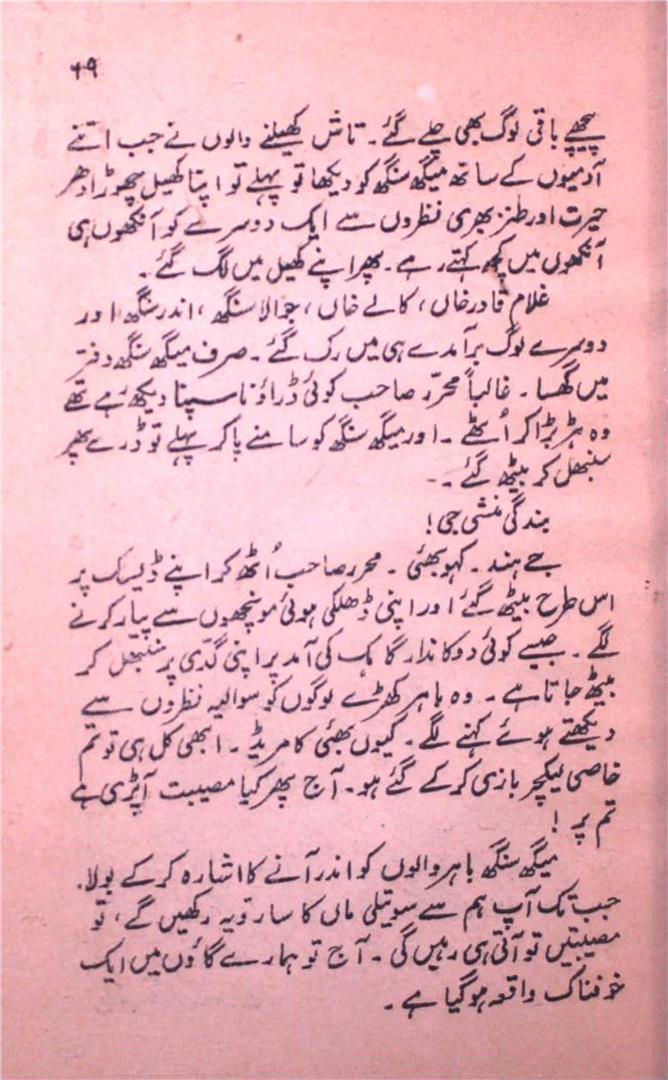 ۶۹
پیچھے باقی لوگ بھی چلے گئے ۔ تاش کھیلنے والوں نے جب اتنے
آدمیوں کے ساتھ میگھ سنگھ کو دیکھا تو پہلے تو اپنا کھیل چھوڑ ادھر
حیرت اور طنز بھری نظروں سے ایک دوسرے کو آنکھوں ہی
آنکھوں میں کچھ کہتے رہے ۔ پھر اپنے کھیل میں لگ گئے ۔
غلام قادر خاں ، کالے خاں ، جوالا سنگھ ، اندر سنگھ اور
دوسرے لوگ برآمدے ہی میں رک گئے ۔ صرف میگھ سنگھ دفتر
میں گھسا ۔ غالباً محرّر صاحب کوئی ڈراؤنا سپنا دیکھ رہے تھے
وہ ہڑبڑا کر اُٹھے ۔ اور میگھ سنگھ کو سامنے پا کر پہلے تو ڈرے پھر
سنبھل کر بیٹھ گئے ۔ ۔
بندگی منشی جی !
جے ہند ۔ کہو بھئی ۔ محرر صاحب اُٹھ کر اپنے ڈیسک پر
اس طرح بیٹھ گئے اور اپنی ڈھلکی ہوئی مونچھوں سے پیار کرنے
لگے ۔ جیسے کوئی دوکاندار گاہک کی آمد پر اپنی گدّی پر سنبھل کر
بیٹھ جاتا ہے ۔ وہ باہر کھڑے لوگوں کو سوالیہ نظروں سے
دیکھتے ہوئے کہنے لگے ۔ کیوں بھئی کامریڈ ۔ ابھی کل ہی تو تم
خاصی لیکچر بازی کر کے گئے ہو ۔ آج پھر کیا مصیبت آپڑی ہے
تم پر !
میگھ سنگھ باہر والوں کو اندر آنے کا اشارہ کر کے بولا ۔
جب تک آپ ہم سے سوتیلی ماں کا سا رویہ رکھیں گے ، تو
مصیبتیں تو آتی ہی رہیں گی ۔ آج تو ہمارے گاؤں میں ایک
خوفناک واقعہ ہو گیا ہے ۔